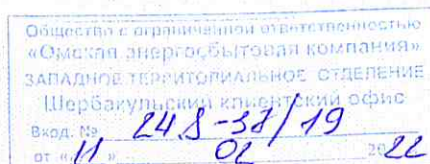 Общество с ограниченной ответственностью
«Омская энергосбытовая компания»
ЗАПАДНОЕ ТЕРРИТОРИАЛЬНОЕ ОТДЕЛЕНИЕ
Шербакульский клиентский офис
Вход. № 248-38/19
от «11» 02 2022